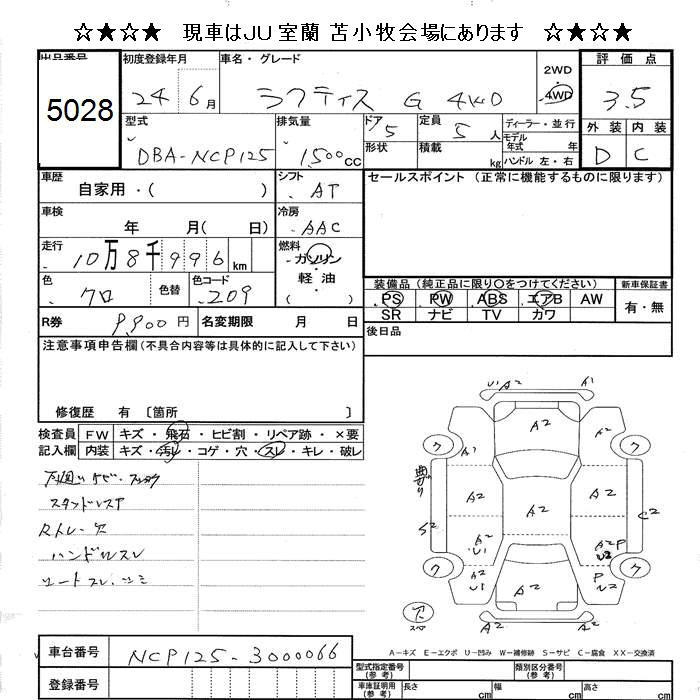 ☆★☆★ 現車はJU室蘭 苫小牧会場にあります ☆★☆★
出品番号
5028
初度登録年月
24年6月
車名・グレード
ラクティス G 4WD
2WD
・
4WD
評価点
3.5
型式
DBA-NCP125
排気量
1500cc
ドア
5
形状
定員
5人
積載
kg
ディーラー・並行
モデル年式 年
ハンドル 左・右
外装
内装
D
C
車歴
自家用・( )
シフト
AT
セールスポイント (正常に機能するものに限ります)
車検
年 月( 日)
冷房
AAC
走行
10万8千996km
燃料
ガソリン
・
軽油
( )
色
クロ
色替
色コード
209
装備品 (純正品に限り〇をつけてください)
新車保証書
PS PW ABS エアB AW
SR ナビ TV カワ
有・無
R券
9,900円
名変期限 月 日
後日品
注意事項申告欄(不具合内容等は具体的に記入して下さい)
修復歴 有 〔箇所 〕
検査員記入欄
FW キズ・飛石・ヒビ割・リペア跡・×要
内装 キズ・汚レ・コゲ・穴・スレ・キレ・破レ
スタッドレスア
ハンドルスレ
シートスレ・シミ
U1 A2 A1
A2
ク ク
A1 A2
曲がり
A2 A2 A2
S2 C2
A2 U1
A2 P U2
A2
ク ク
A2 U1
P U2
A2 A2
スペア
A-キズ E-エクボ U-凹み W-補修跡 S-サビ C-腐食 XX-交換済
車台番号
NCP125-3000066
登録番号
型式指定番号(参考)
類別区分番号(参考)
車庫証明用(参考)
長さ cm
幅 cm
高さ cm